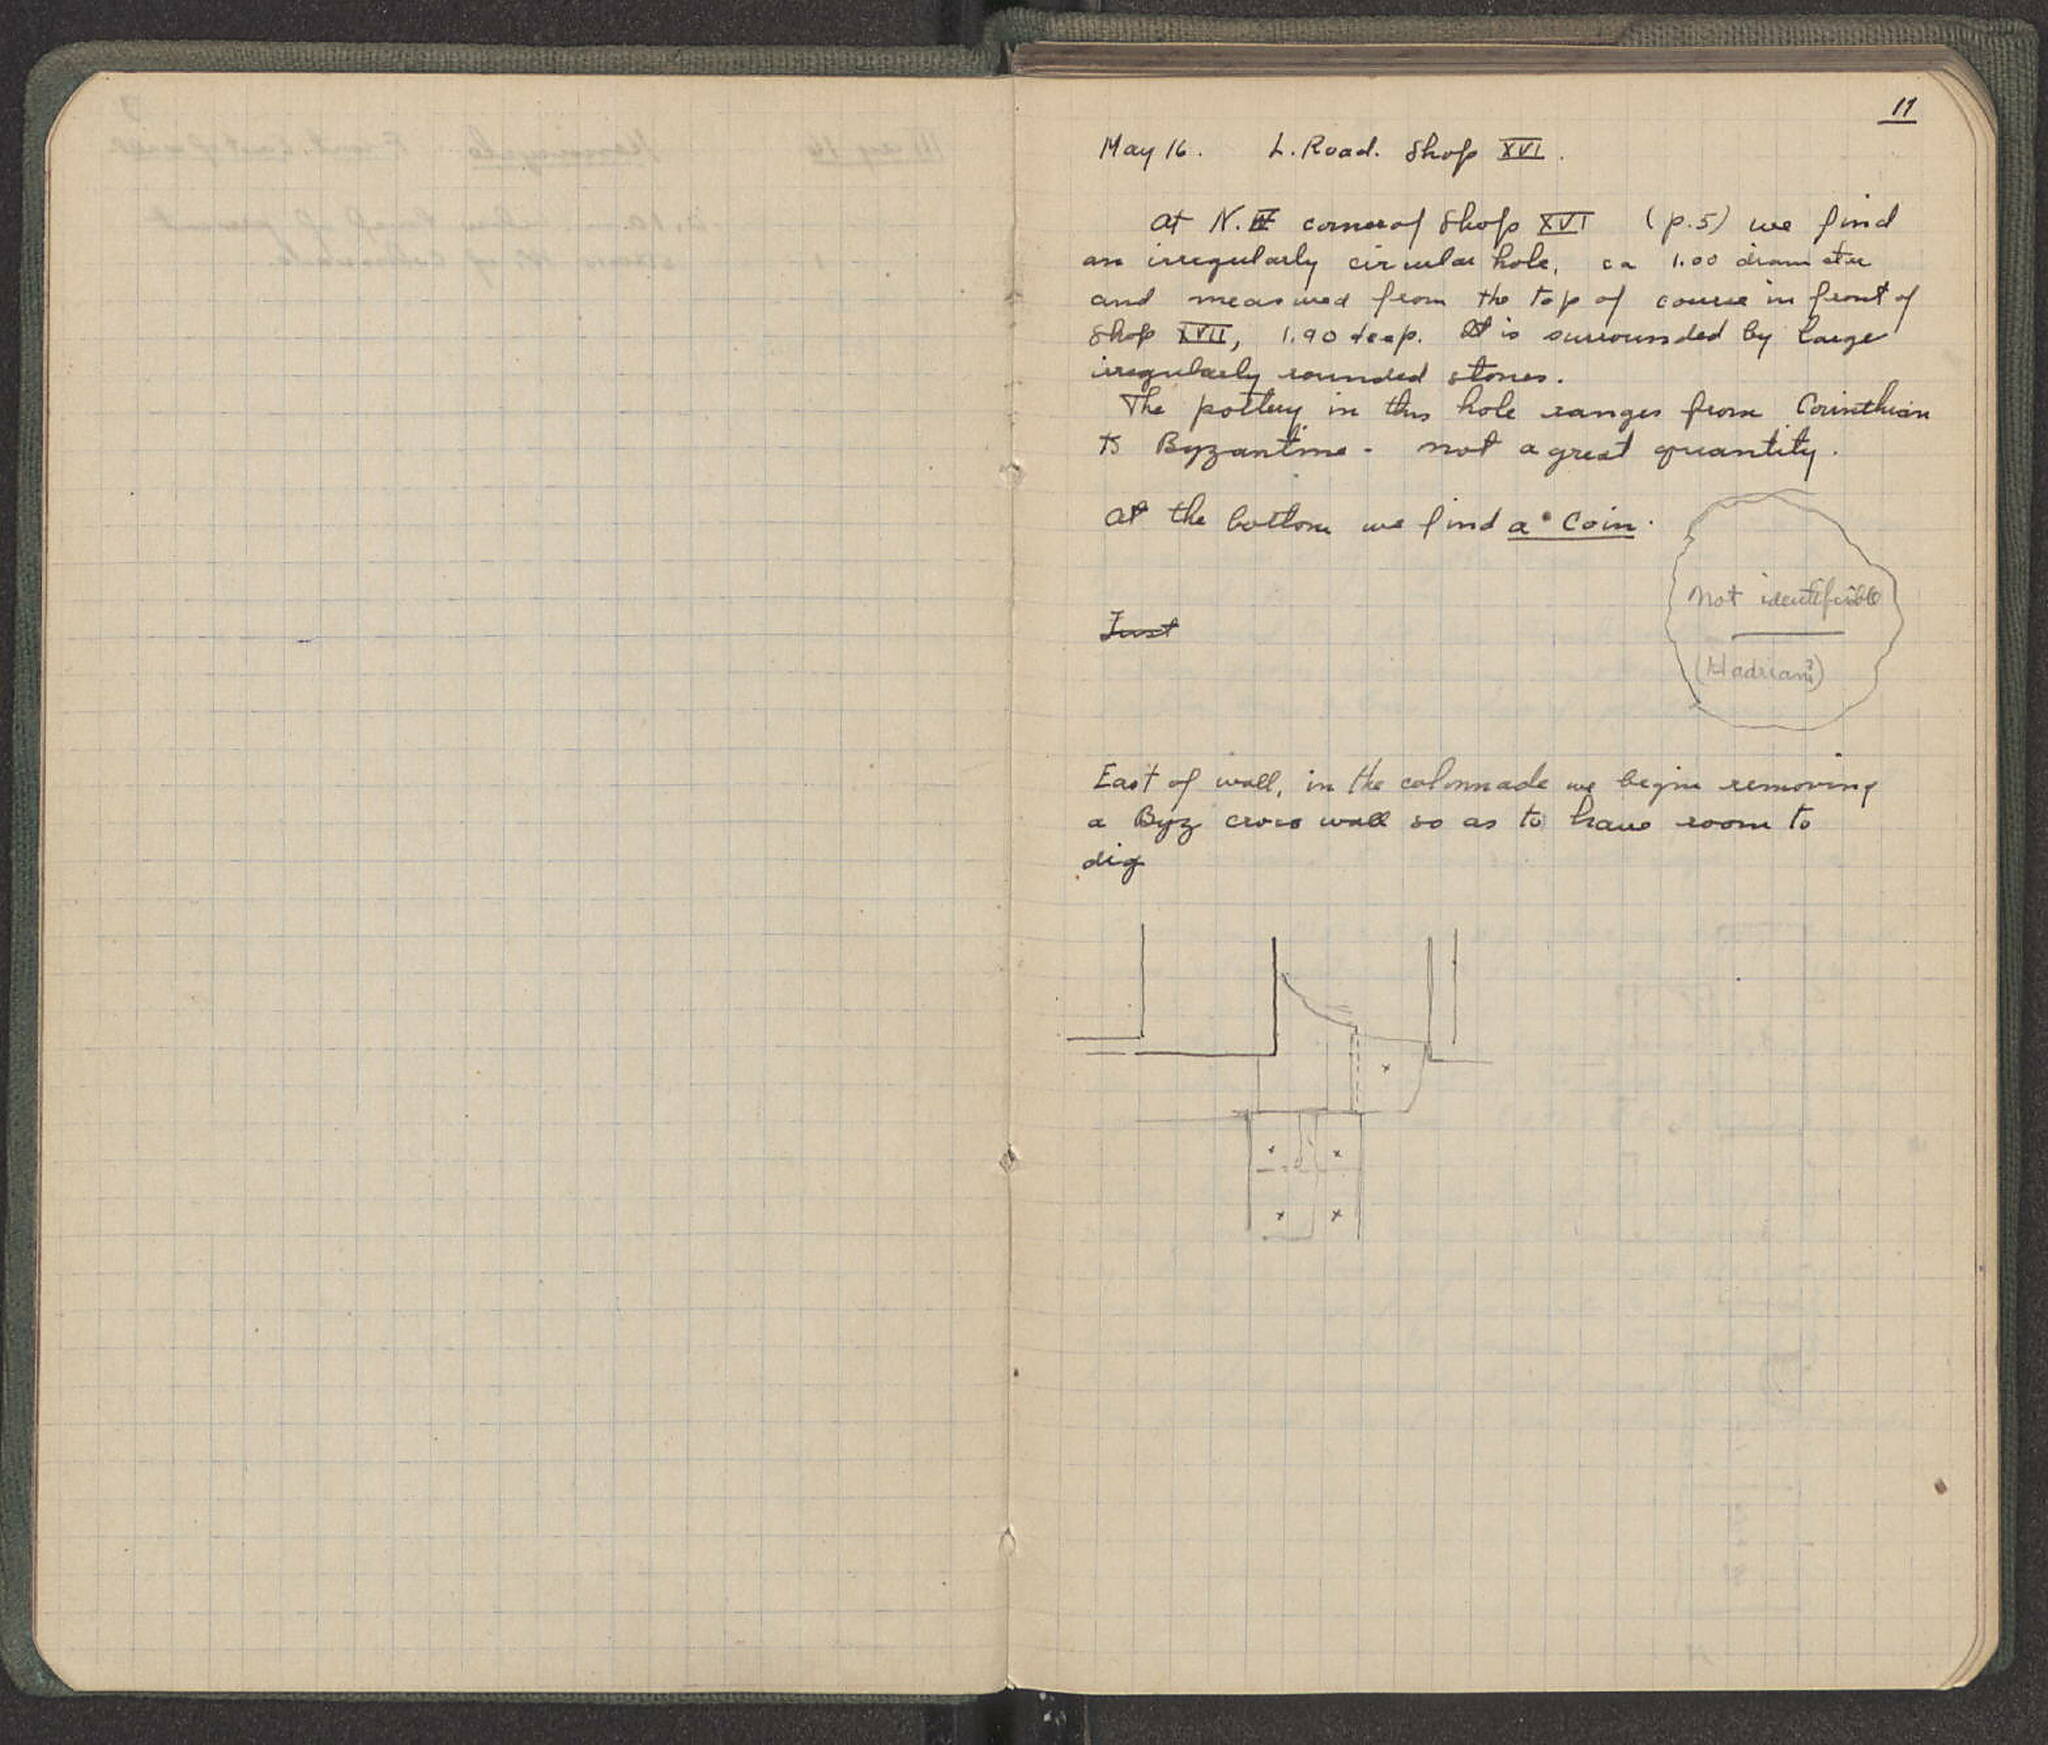 11
May 16. L. Road. Shop XVI.
At N.W corner of Shop XVI (p.5) we find
an irregularly circular hole, ca 1.00 diameter
and measured from the top of course in front of
Shop XVII, 1.90 deep. It is surrounded by large
irregularly rounded stones.
The pottery in this hole ranges from Corinthian
to Byzantine - not a great quantity.
At the bottom we find a Coin.
Not identifiable
Just
(Hadrian?)
East of wall, in the colonnade we begin removing
a Byz cross wall so as to have room to
dig
x
x x
x x